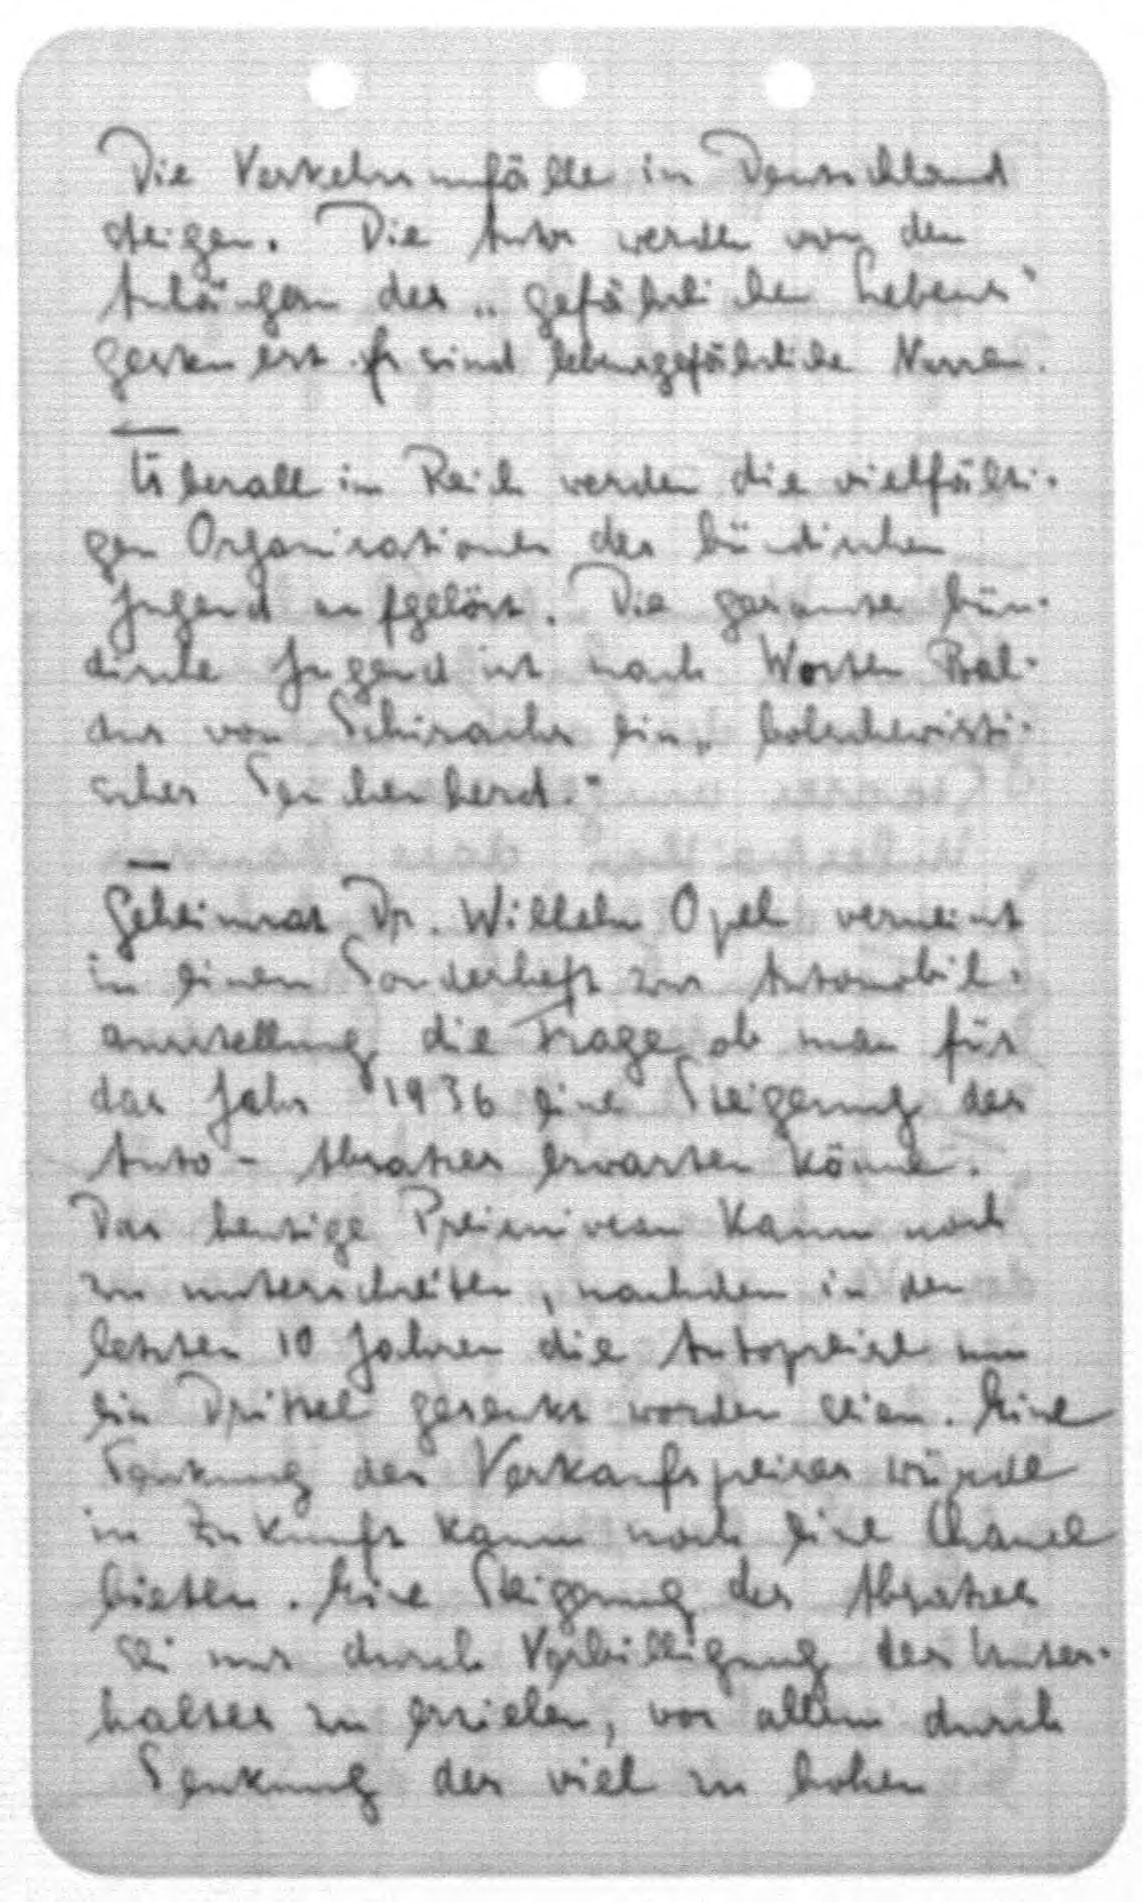 Die Verkehrsunfälle in Deutschland
steigen. Die Autos werden von den
Anhängern des „gefährlichen Lebens"
gesteuert. Es sind lebensgefährliche Narren.
Überall im Reich werden die vielfälti-
gen Organisationen der bündischen
Jugend aufgelöst. Die gesamte bün-
dische Jugend ist nach Worten Bal-
durs von Schirachs ein „bolschewisti-
scher Seuchenherd."
Geheimrat Dr. Wilhelm Opel verneint
in einem Sonderheft zur Automobil-
ausstellung die Frage ob man für
das Jahr 1936 eine Steigerung des
Auto - Absatzes erwarten könne.
Das heutige Preisniveau kaum noch
zu unterschreiten, nachdem in den
letzten 10 Jahren die Autopreise um
ein Drittel gesenkt worden seien. Eine
Senkung des Verkaufspreises würde
in Zukunft kaum noch eine Chance
bieten. Eine Steigerung des Absatzes
sei nur durch Verbilligung des Unter-
haltes zu erzielen, vor allem durch
Senkung der viel zu hohen